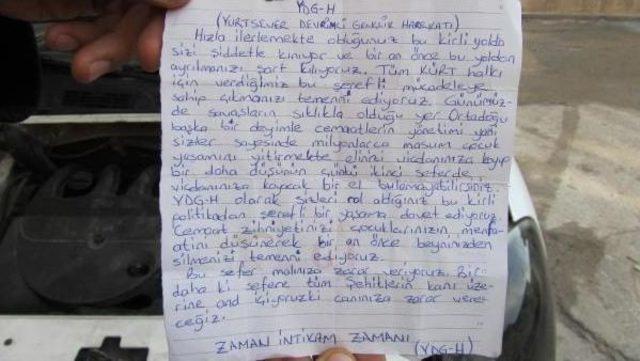 YDG-H
(YURTSEVER DEVRİMCİ GENÇLİK HAREKATI)
Hızla ilerlemekte olduğunuz bu kirli yolda
sizi şiddetle kınıyor ve bir an önce bu yoldan
ayrılmanızı şart kılıyoruz. Tüm KÜRT halkı
için verdiğimiz bu şerefli mücadeleye
sahip çıkmanızı temenni ediyoruz. Günümüz-
de savaşların sıklıkla olduğu yer Ortadoğu
başka bir deyimle cemaatlerin yönetimi yani
sizler sayesinde milyonlarca masum çocuk
yaşamını yitirmekte elinizi vicdanınıza koyup
bir daha düşünün çünkü ikinci seferde
vicdanınıza koyacak bir el bulamayabilirsiniz.
YDG-H olarak sizleri rol aldığınız bu kirli
politikadan şerefli bir yaşama davet ediyoruz.
Cemaat zihniyetinizi çocuklarınızın menfa-
atini düşünerek bir an önce beyninizden
silmenizi temenni ediyoruz.
Bu sefer malınıza zarar veriyoruz. Bir
daha ki sefere tüm şehitlerin kanı üze-
rine and içiyoruzki canınıza zarar vere-
ceğiz.
ZAMAN İNTİKAM ZAMANI
(YDG-H)